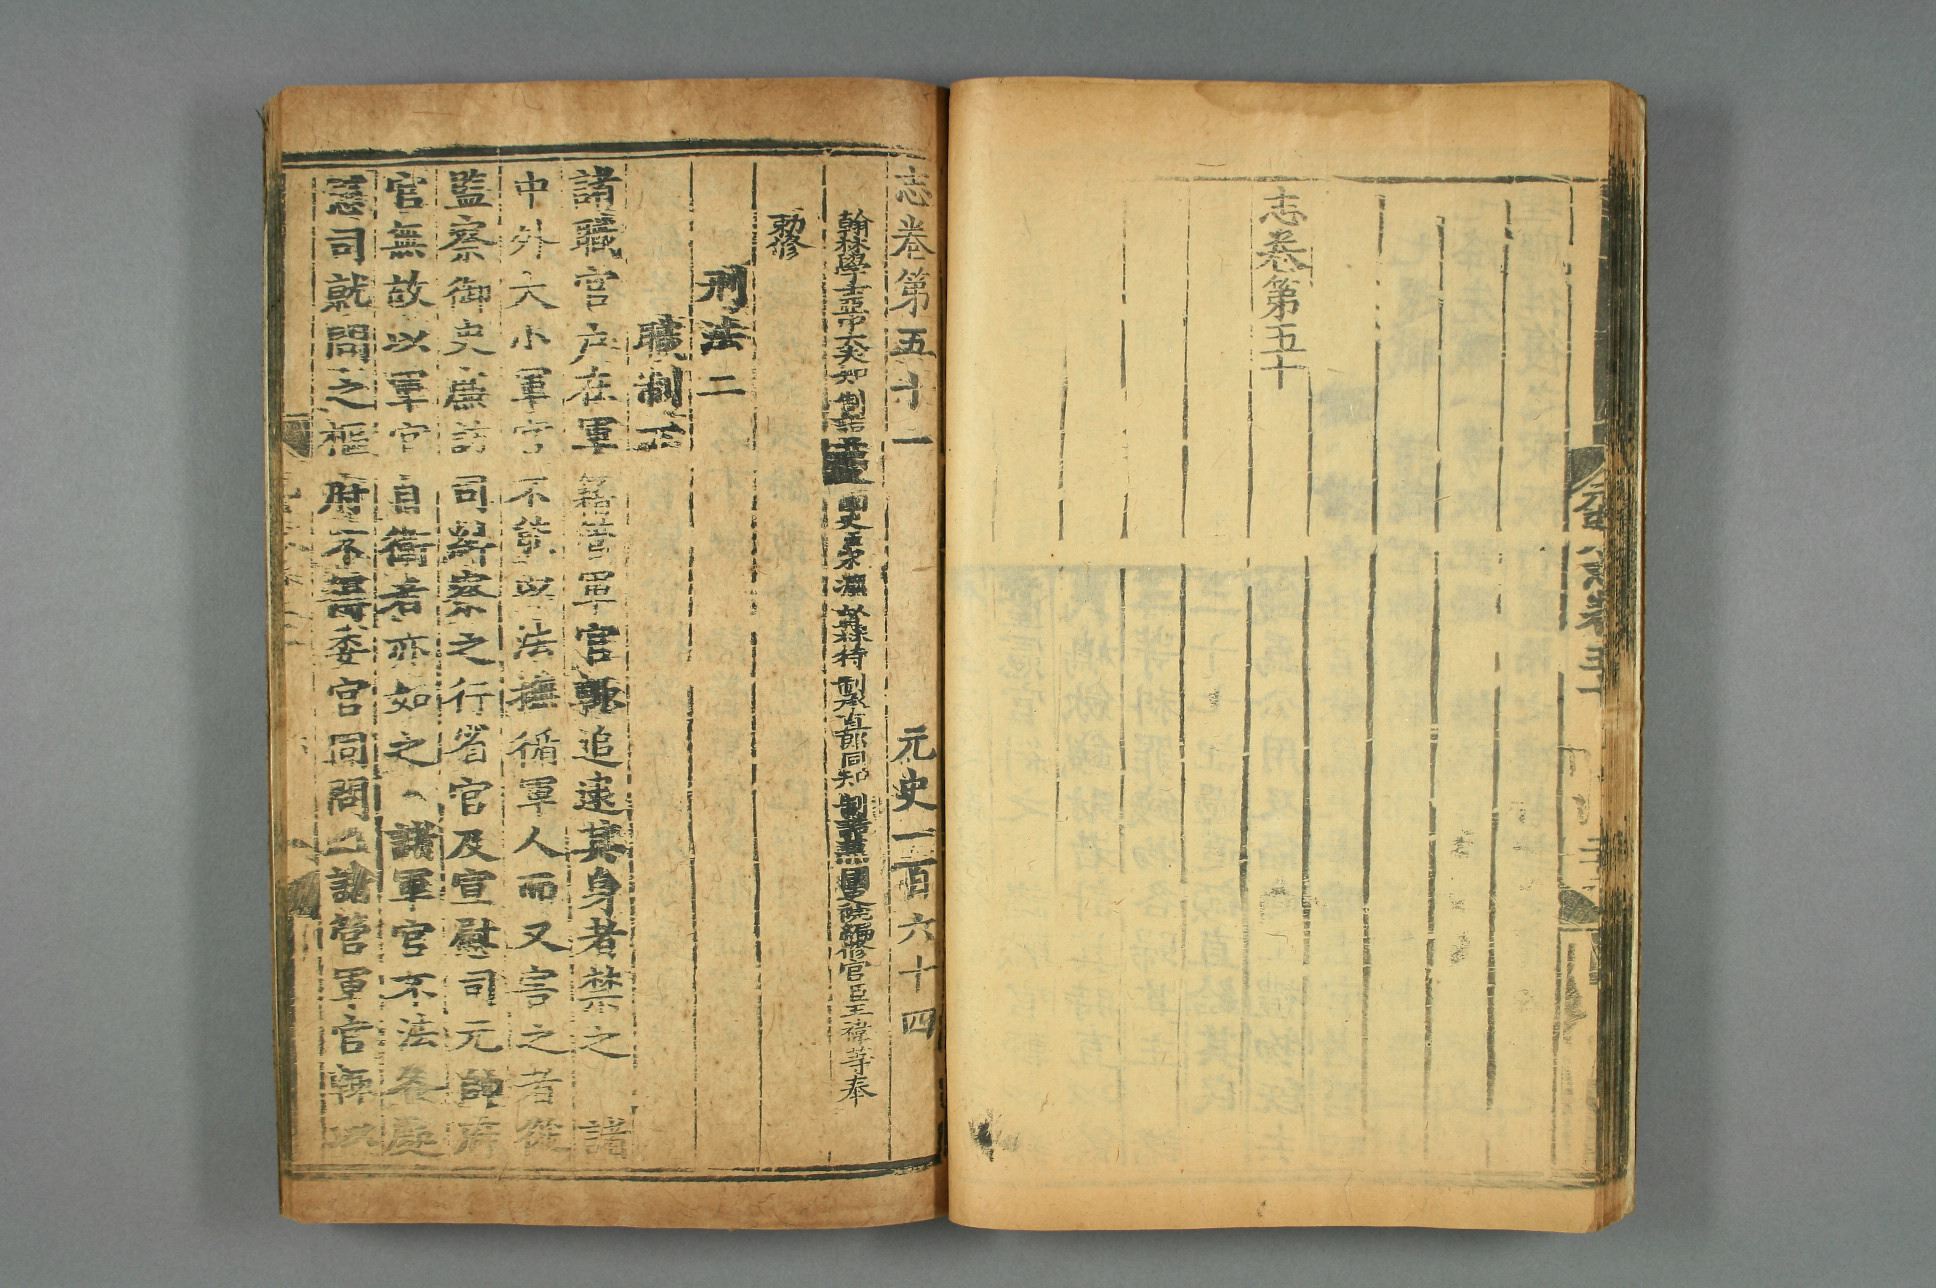 志卷第五十
志卷第五十一 元史一百六十四
翰林學士亞中大夫知制誥兼修國史臣宋濂 翰林待制承直郎同知制誥兼國史院編修官臣王禕等奉
勅修
刑法二
職制下
諸職官戶在軍籍管軍官輒追逮其身者禁之 諸
中外大小軍官不能以法撫循軍人而又害之者從
監察御史廉訪司糾察之行省官及宣慰司元帥府
官無故以軍官自衛者亦如之 諸軍官不法各處
憲司就問之樞府不得委官同問 諸管軍官輒以